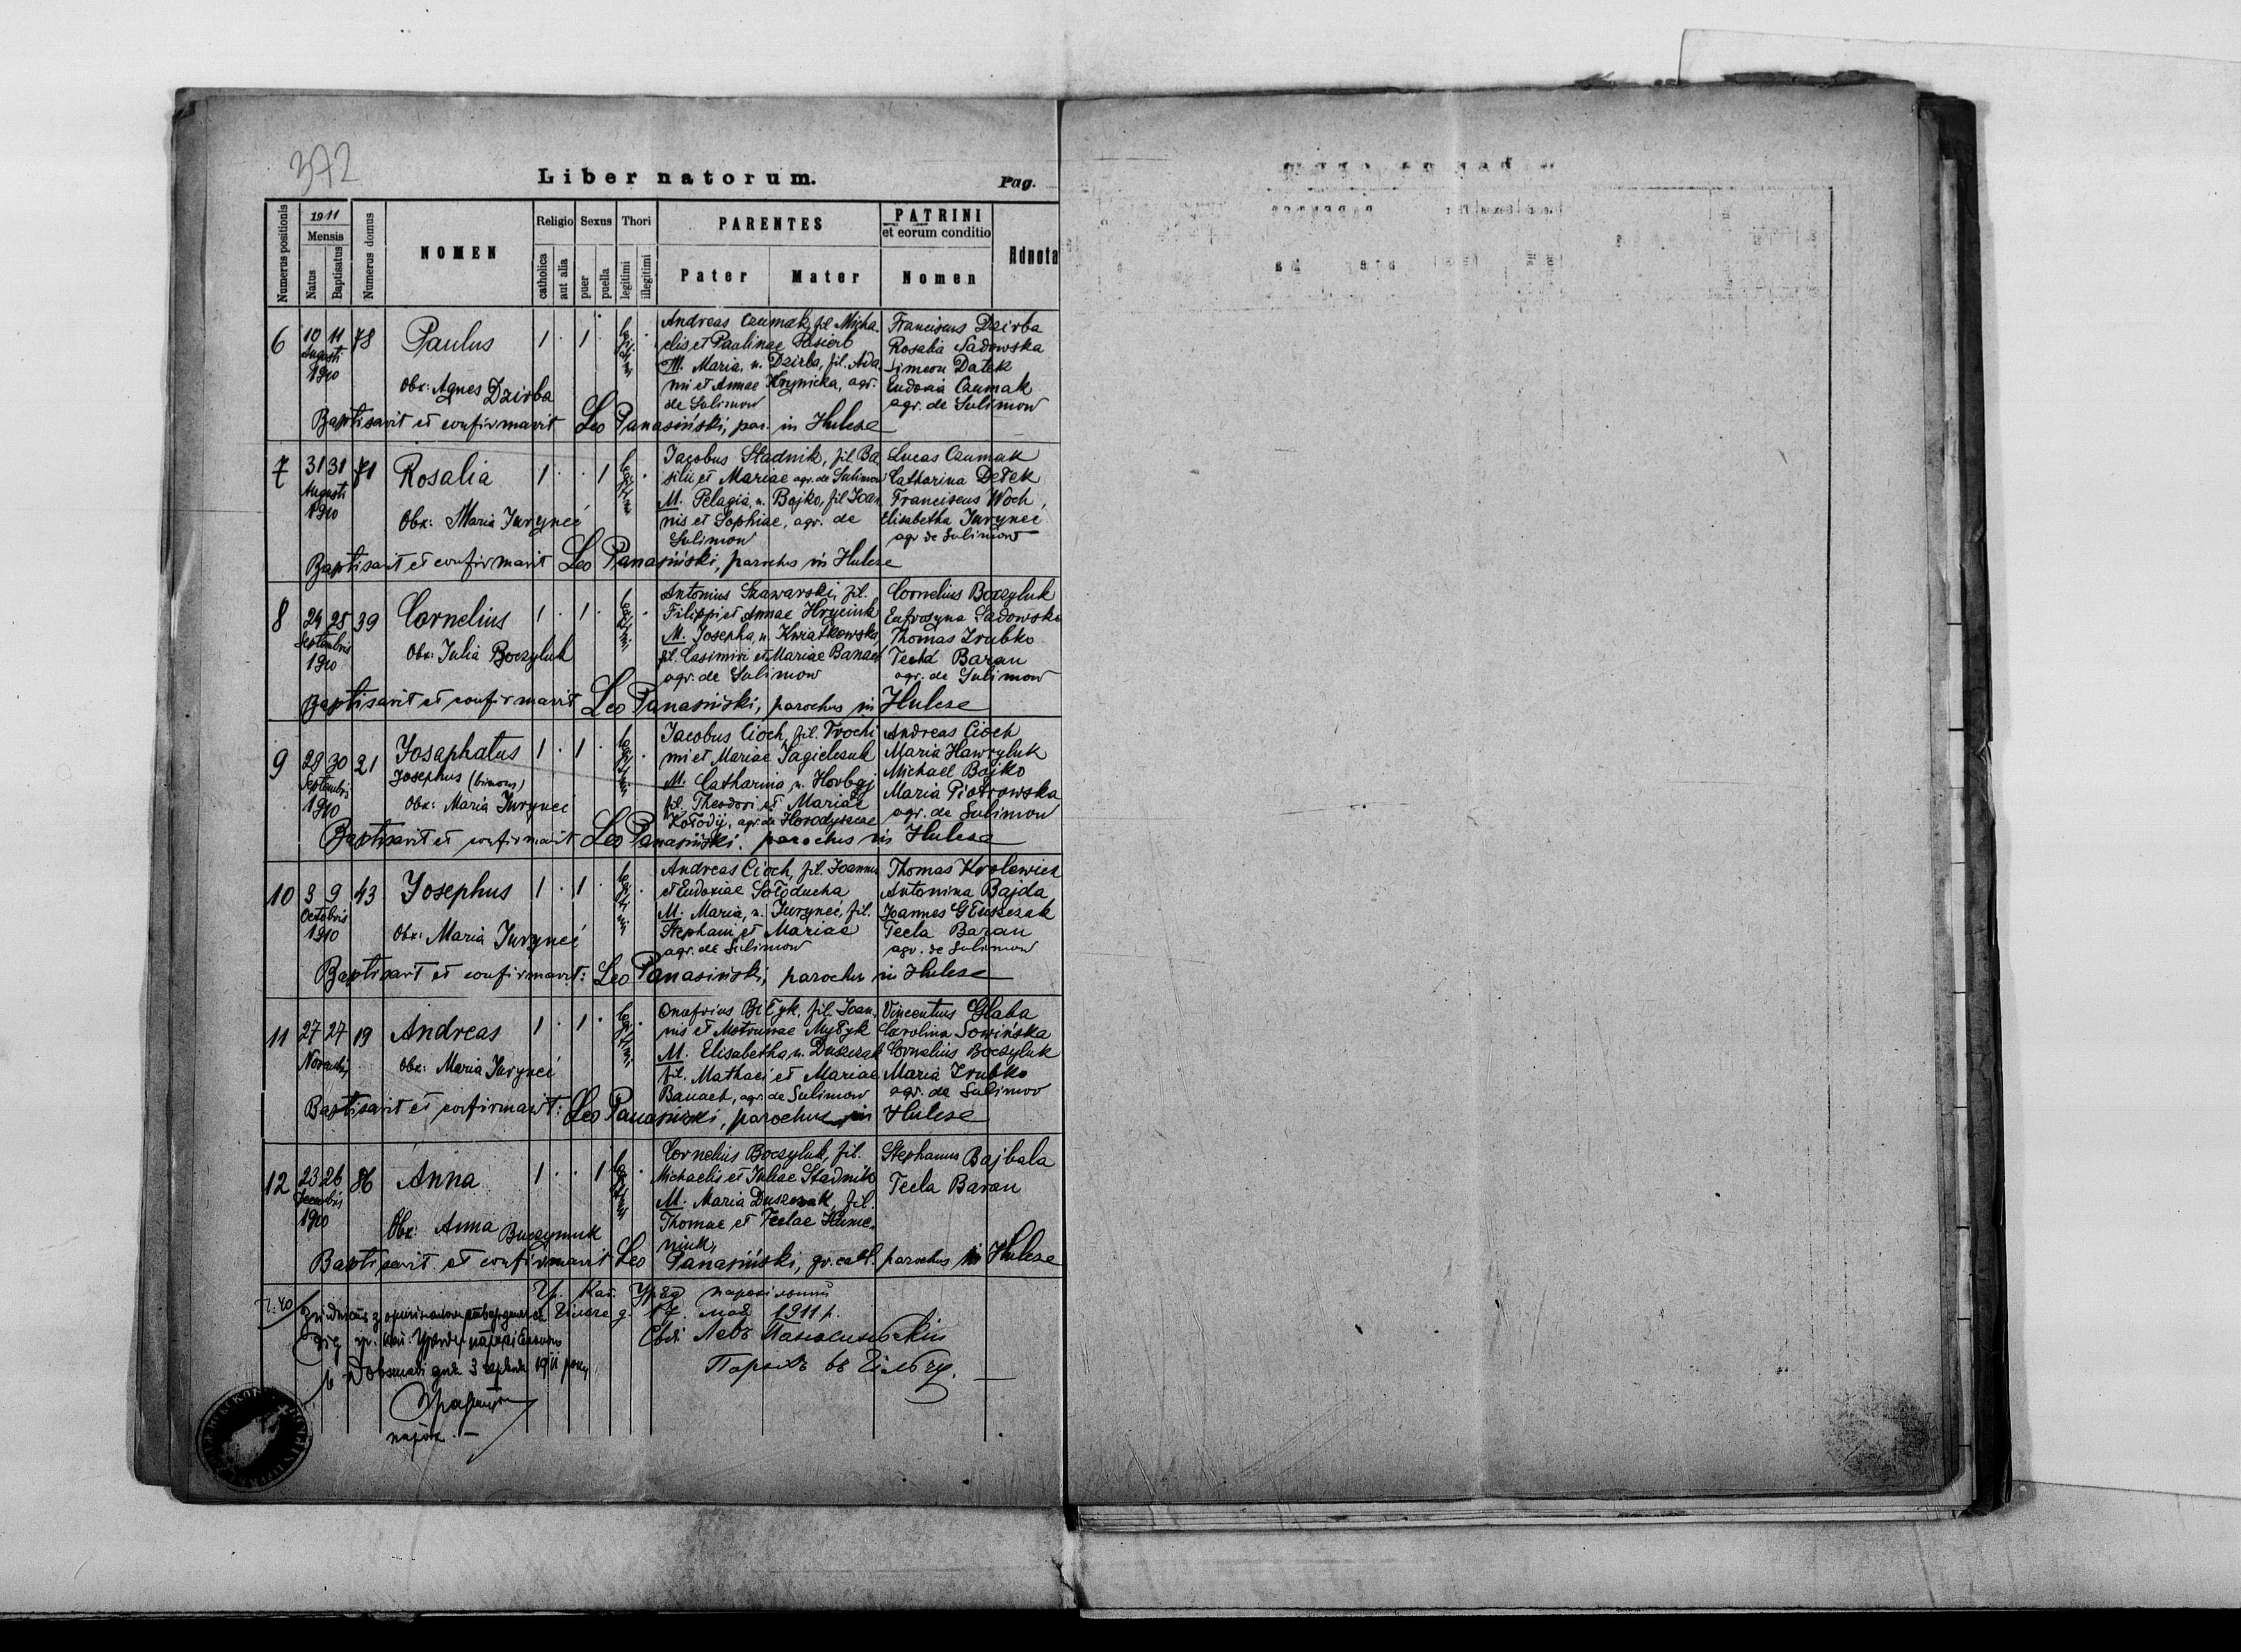 372
Liber natorum.
Pag.
Numerus positionis
1911
Mensis
Natus
Baptisatus
Numerus domus
NOMEN
Religio
catholica
aut alia
Sexus
puer
puella
Thori
legitimi
illegitimi
PARENTES
Pater
Mater
PATRINI
et eorum conditio
Nomen
Adnota
6 10 11 78 Paulus 1 . 1 . legitimi .
Augusti
1910
Obx: Agnes Dzirba
Andreas Czumak, fil. Micha-
elis et Paulinae Pasierb
M. Maria, n. Dzirba, fil. Ada
mi et Annae Hrynicka, agr.
de Sulimow
Franciscus Dzirba
Rosalia Sadowska
Simeon Datek
Eudoxia Czumak
agr. de Sulimow
Baptisavit et confirmavit Leo Panasiński, par. in Hulcze
7 31 31 71 Rosalia 1 . . 1 legitimi .
Augusti
1910
Obx: Maria Juryneć
Jacobus Stadnik, fil. Ba
silii et Mariae agr. de Sulimow
M. Pelagia, n. Bojko, fil. Joan
nis et Sophiae, agr. de
Sulimow
Lucas Czumak
Catharina Detek
Franciscus Woch,
Elisabetha Juryneć
agr de Sulimow
Baptisavit et confirmavit Leo Panasiński, parochus in Hulcze
8 24 25 39 Cornelius 1 . 1 . legitimi .
Septembris
1910
Obx: Julia Boczyluk
Antonius Szawarski, fil.
Filippi et Annae Hryciuk
M. Josepha, n. Kwiatkowska
fil. Casimiri et Mariae Banach
agr. de Sulimow
Cornelius Boczyluk
Eufrosyna Sadowska
Thomas Zrubko
Tecla Baran
agr. de Sulimow
Baptisavit et confirmavit Leo Panasiński, parochus in Hulcze
9 28 30 21 Josaphatus 1 . 1 . legitimi .
Septembris
1910
Josephus (binom)
Obx: Maria Juryneć
Jacobus Cioch, fil. Trochi
mi et Mariae Jagielczuk
M. Catharina, n. Horbgj
fil. Theodori et Mariae
Kołodij, agr. de Horodyszcze
Andreas Cioch
Maria Hawryluk
Michael Bojko
Maria Piotrowska
agr. de Sulimow
Baptisavit et confirmavit Leo Panasiński. parochus in Hulcze
10 3 9 43 Josephus 1 . 1 . legitimi .
Octobris
1910
Obx: Maria Juryneć
Andreas Cioch, fil. Joannis
et Eudoxiae Sołoducha
M. Maria, n. Juryneć, fil.
Stephani et Mariae
agr. de Sulimow
Thomas Krolewicz
Antonina Bajda
Joannes Głuszczak
Tecla Baran
agr. de Sulimow
Baptisavit et confirmavit: Leo Panasiński, parochus in Hulcze
11 27 27 19 Andreas 1 . 1 . legitimi .
Novembris
Obx: Maria Juryneć
Onufrius Biłyk, fil. Joan.
nis et Motrunae Mytyk
M. Elisabetha, n. Duszczak
fil. Mathaei et Mariae
Banach, agr. de Sulimow
Vincentius Głaba
Carolina Sowińska
Cornelius Boczyluk
Maria Zrubko
agr. de Sulimow
Baptisavit et confirmavit: Leo Panasiński, parochus in Hulcze
12 23 26 86 Anna 1 . . 1 legitimi .
Decembris
1910
Obx: Anna Buczymuk
Cornelius Boczyluk, fil.
Michaelis et Juliae Stadnik
M. Maria Duszczak, fil.
Thomae et Teclae Hume-
niuk,
Stephanus Bajbala
Tecla Baran
Baptisavit et confirmavit Leo Panasiński, gr. cath. parochus in Hulcze
Гр. Кат. Уряд парохіяльний
д. 17 мая 1911 р.
Свящ Левъ Панасиньскій
Парохъ въ
Ч: 40
гр. кат. Уряду
дня 3 1911 року
парох.